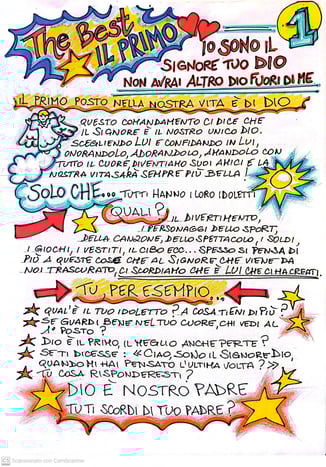 The Best
IL PRIMO
1
IO SONO IL
SIGNORE TUO DIO
NON AVRAI ALTRO DIO FUORI DI ME
IL PRIMO POSTO NELLA NOSTRA VITA È DI DIO
QUESTO COMANDAMENTO CI DICE CHE
IL SIGNORE È IL NOSTRO UNICO DIO.
SCEGLIENDO LUI E CONFIDANDO IN LUI,
ONORANDOLO, ADORANDOLO, AMANDOLO CON
TUTTO IL CUORE, DIVENTIAMO SUOI AMICI E LA
NOSTRA VITA SARÀ SEMPRE PIÙ BELLA!
SOLO CHE... TUTTI HANNO I LORO IDOLETTI
QUALI? IL DIVERTIMENTO,
I PERSONAGGI DELLO SPORT,
DELLA CANZONE, DELLO SPETTACOLO, I SOLDI,
I GIOCHI, I VESTITI, IL CIBO ECC... SPESSO SI PENSA DI
PIÙ A QUESTE COSE CHE AL SIGNORE CHE VIENE DA
NOI TRASCURATO, CI SCORDIAMO CHE È LUI CHE CI HA CREATI.
TU, PER ESEMPIO...
QUAL'È IL TUO IDOLETTO? A COSA TIENI DI PIÙ?
SE GUARDI BENE NEL TUO CUORE, CHI VEDI AL
1° POSTO?
DIO È IL PRIMO, IL MEGLIO ANCHE PER TE?
SE TI DICESSE: «CIAO, SONO IL SIGNORE DIO,
QUANDO MI HAI PENSATO L'ULTIMA VOLTA?»
TU COSA RISPONDERESTI?
DIO È NOSTRO PADRE
TU TI SCORDI DI TUO PADRE?
Scansionato con CamScanner